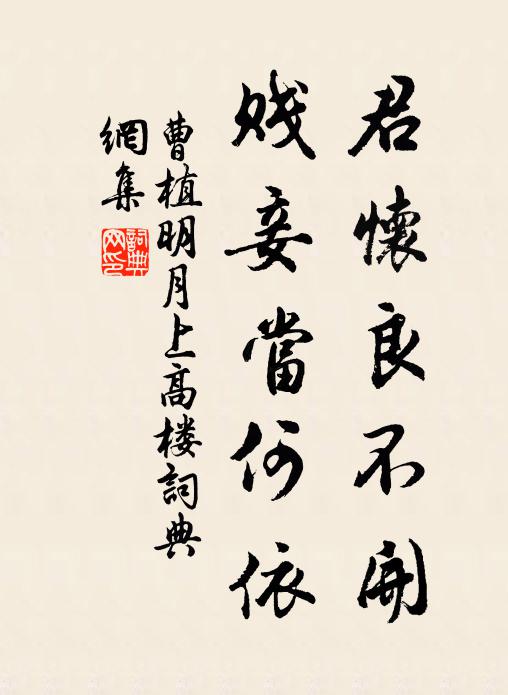 君懷良不開
賎妾當何依
曹植明月上高楼詞典
網集
詞典
网印